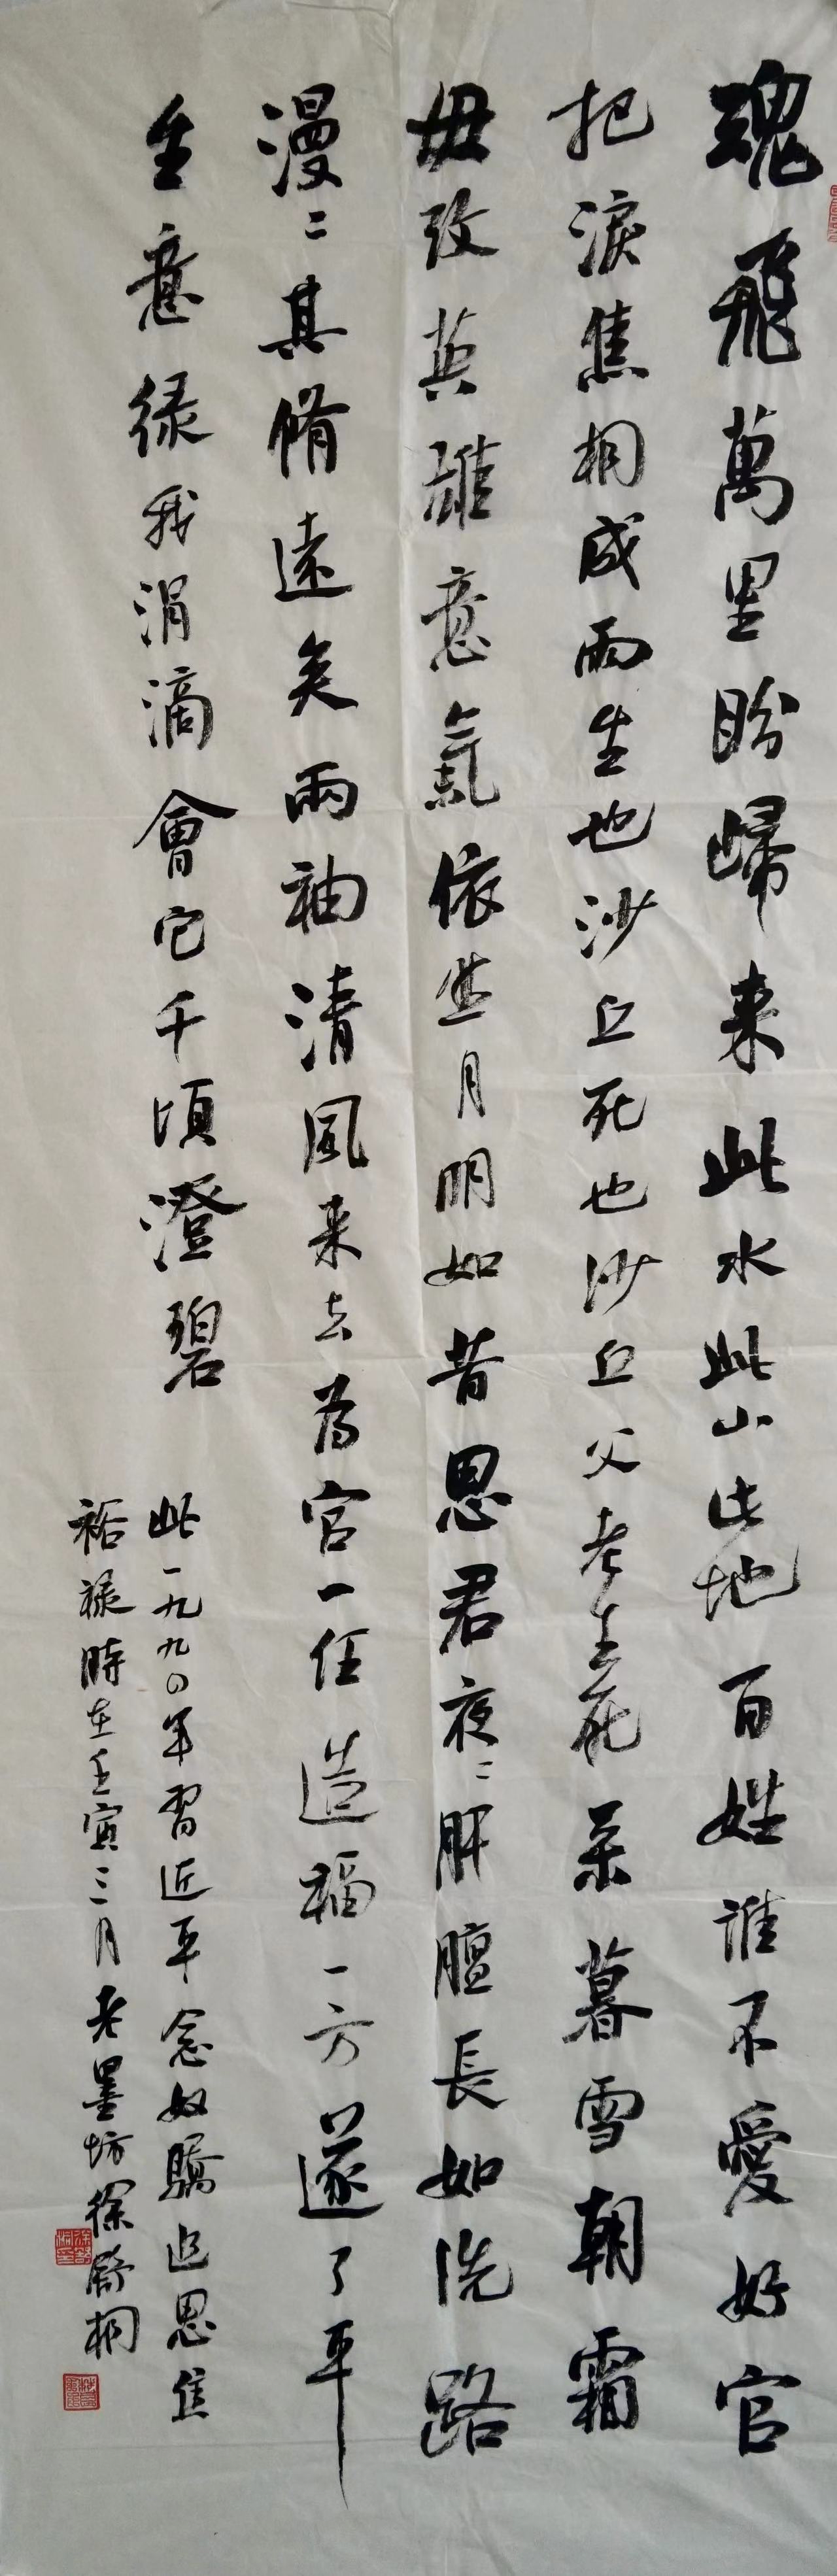 魂飛萬里盼歸来此水此山此地百姓誰不愛好官
把淚焦桐成雨生也沙丘死也沙丘父老生死系暮雪朝霜
毋改英雄意氣依然月明如昔思君夜〻肝膽長如洗路
漫〻其脩遠矣兩袖清風来去為官一任造福一方遂了平
生意绿我涓滴會它千頃澄碧
此一九九〇年習近平念奴驕追思焦
裕禄時在壬寅三月老墨坊徐